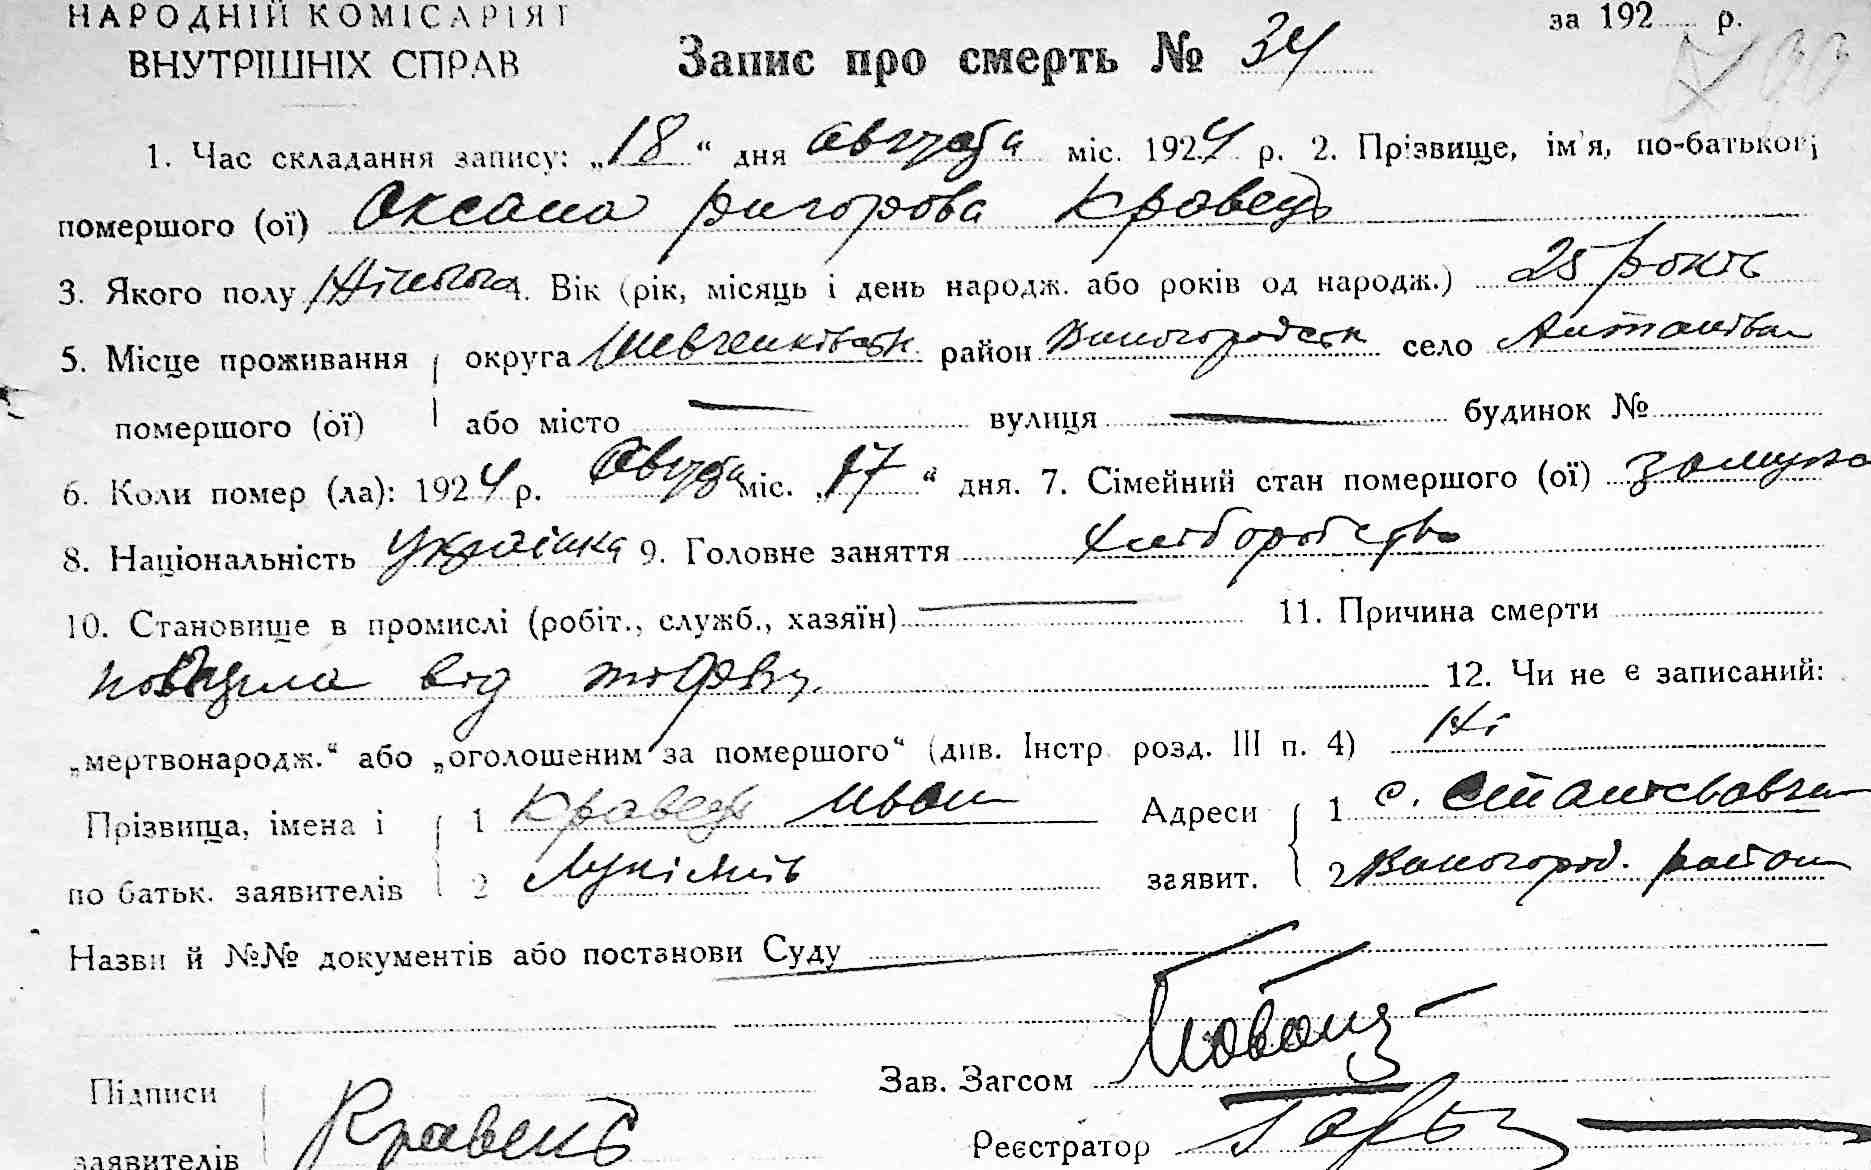 НАРОДНІЙ КОМІСАРІЯТ
ВНУТРІШНІХ СПРАВ
за 192 р.
Запис про смерть № 34
1. Час складання запису: „18“ дня Августа міс. 1924 р. 2. Прізвище, ім'я, по-батькові
помершого (ої) Оксана Ригорова Кравець
3. Якого полу Жіночого 4. Вік (рік, місяць і день народж. або років од народж.) 25 років
5. Місце проживання округа Шевченківськ район Виногородськ село Антонівка
помершого (ої) або місто — вулиця — будинок №
6. Коли помер (ла): 1924 р. Августа міс. „17“ дня. 7. Сімейний стан помершого (ої) замужа
8. Національність Українка 9. Головне заняття Хліборобство
10. Становище в промислі (робіт., служб., хазяїн) — 11. Причина смерти
від 12. Чи не є записаний:
„мертвонародж.“ або „оголошеним за помершого“ (див. Інстр. розд. III п. 4) Ні
Прізвища, імена і 1 Кравець Иван Адреси 1 с.
по батьк. заявителів 2 заявит. 2 Виногород. район
Назви й №№ документів або постанови Суду —
Зав. Загсом
Підписи
заявителів Кравець Реєстратор